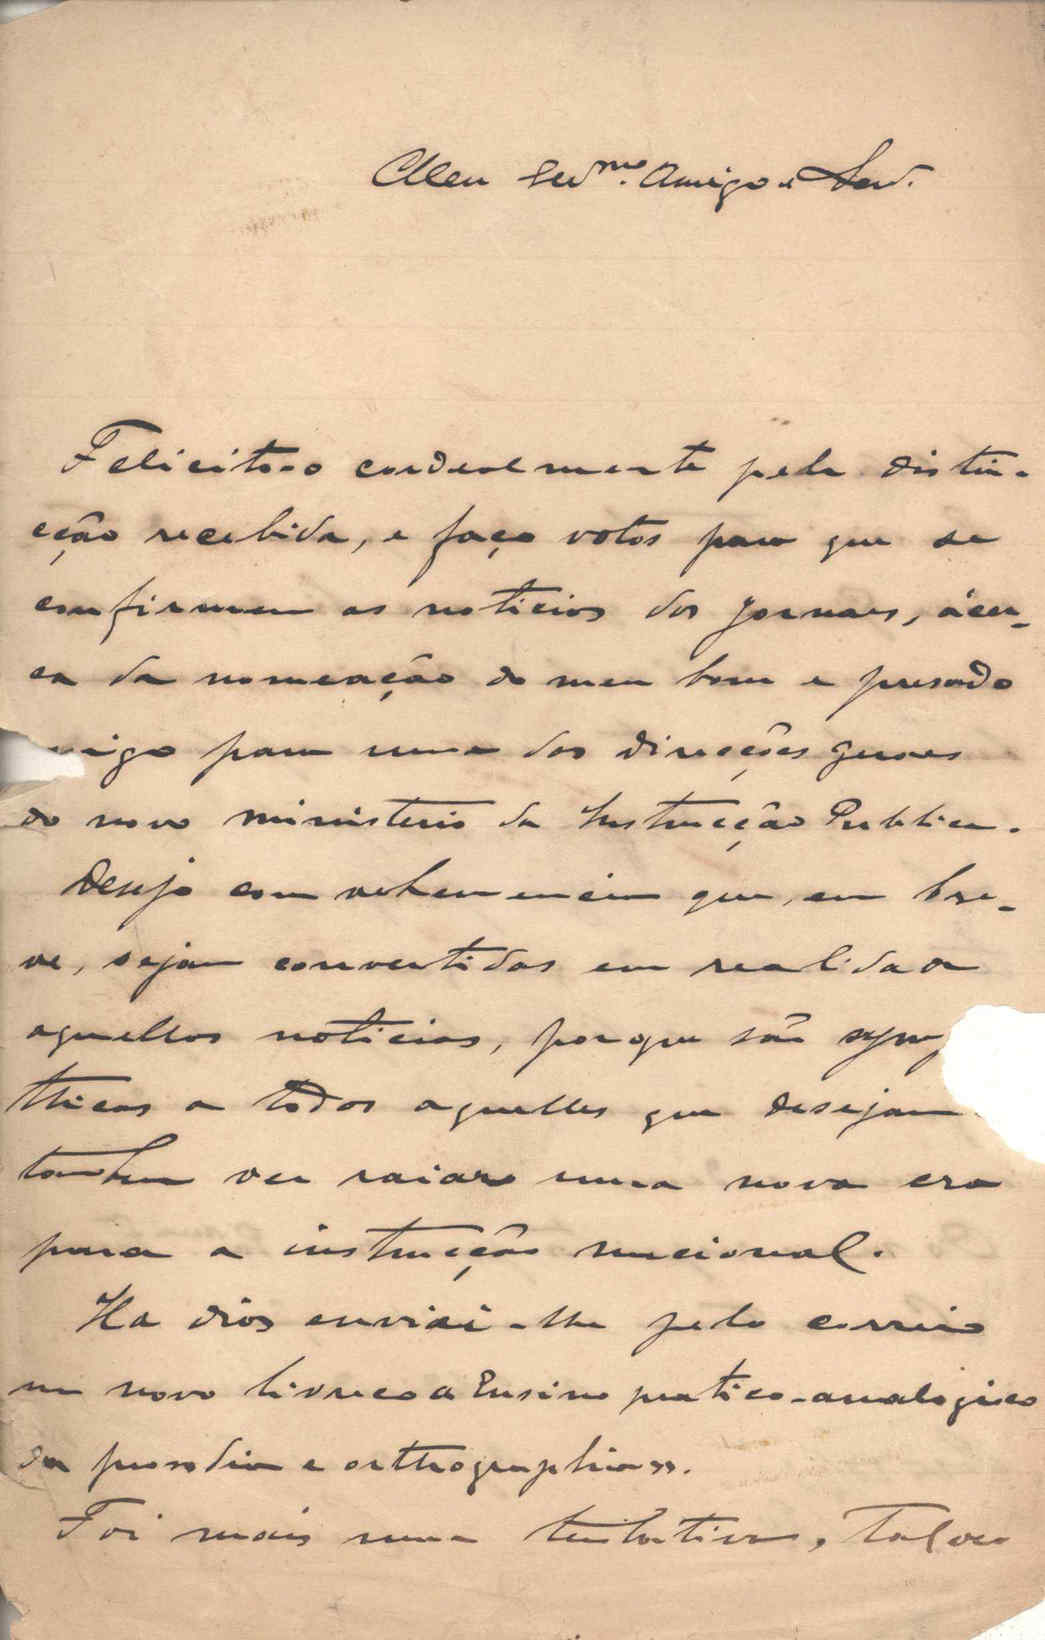 Meu Ill.mo Amigo e Snr.
Felicito-o cordealmente pela distin-
cção recebida, e faço votos para que se
confirmem as noticias dos jornaes, ácer-
ca da nomeação do meu bom e presado
migo para uma das direcções geraes
do novo ministerio da Instrucção Publica.
Desejo com vehemencia que, em bre-
ve, sejam convertidas em realidade
aquellas noticias, porque são symp
thicas a todos aquelles que desejam
tambem ver raiar uma nova era
para a instrucção nacional.
Ha dias enviei-lhe pelo correio
um novo livreco «Ensino pratico-analogico
da prosodia e orthographia».
Foi mais uma tentativa, talvez